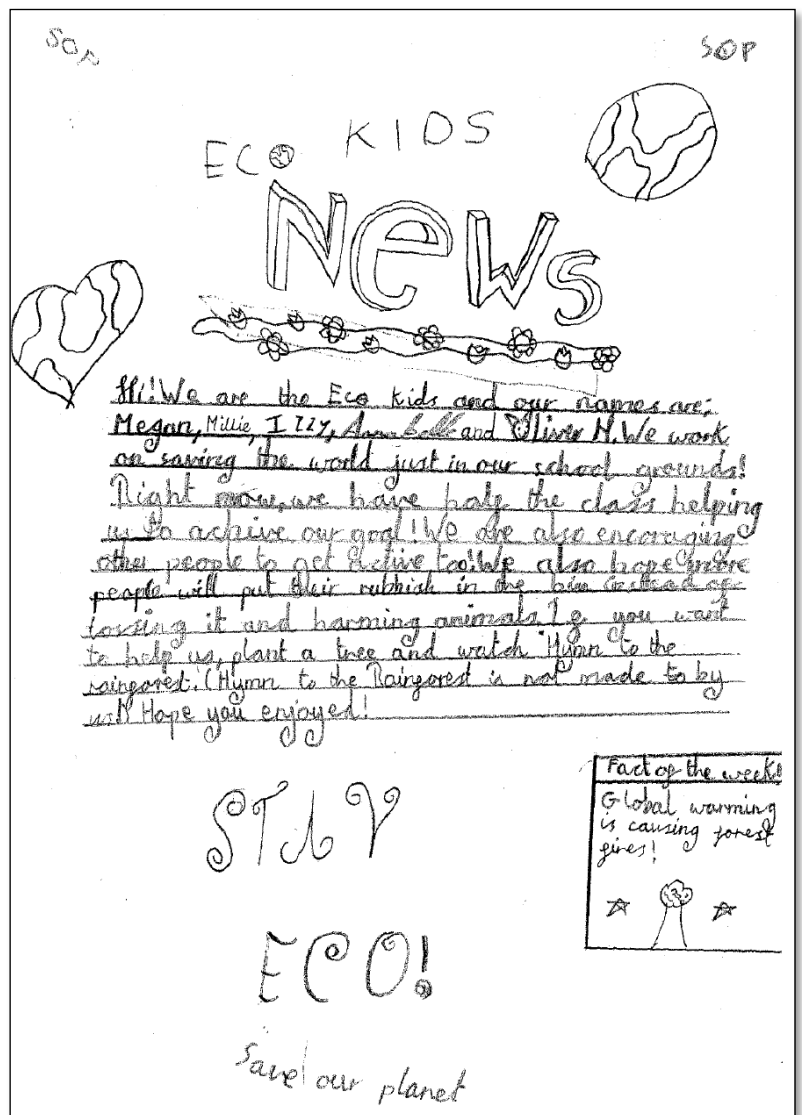 SOP
SOP
ECO KIDS
News
Hi! We are the Eco kids and our names are;
Megan, Millie, Izzy, Annabelle and Oliver N. We work
on saving the world just in our school grounds!
Right now, we have half the class helping
us to achive our goal! We are also encouraging
other people to get active too! We also hope more
people will put their rubbish in the bin instead of
tossing it and harming animals. If you want
to help us, plant a tree and watch 'Hymn to the
raingorest. (Hymn to the Raingorest is not made to by
us!) Hope you enjoyed!
Fact of the week!
Global warming
is causing forest
fires!
STAY
ECO!
Save our planet